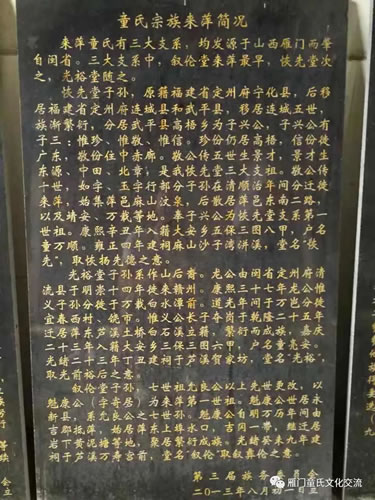 童氏宗族来萍简况
来萍童氏有三大支系，均发源于山西雁门而肇
自闽省。三大支系中，叙伦堂来萍最早，恢先堂次
之，光裕堂随之。
恢先堂子孙，原籍福建省定州府宁化县，后移
居福建省定州府连城县和武平县，移居连城五世，
族渐繁衍，分居武平县高梧乡为子兴公，子兴公有
子三：惟珍、惟敬、惟信。珍份仍居高梧，信份徙
广东，敬份住中赤廊。敬公传五世生景才，景才生
东源、中田、北章，是我恢先堂三大支祖。敬公传
十世，如字、玉字行部分子孙在清顺治年间分迁徙
来萍，始集萍邑麻山汶泉，后散居萍邑东南二路，
以及靖安、万载等地。奉子兴公为恢先堂支系第一
世祖。康熙年九年入籍大安乡五保三图八甲，户名
童万顺。雍正四年建祠麻山沙子湾洴溪，堂名“恢
先”，取恢扬先德之意。
光裕堂子孙系作山后裔。龙公由闽省定州府清
流县于明崇十四年徙来赣州。康熙三十七年龙公惟
义子孙分徙于万载白水潭前。道光年间于万邑分徙
宜春西村、饶市。惟义公长子奇岗于乾隆二十五年
迁居萍东芦溪土桥白石溪立籍，繁衍而成族。嘉庆
二十三年入籍大安乡三保三图六甲，户名童亮安。
光绪二十三年丁丑建祠于芦溪贺家坊，堂名“光裕”，
取光前裕后之意。
叙伦堂子孙，七世祖允良公以上先世更改，以
魁康公（字寄居）为来萍第一世祖。魁康公世居永
新县，系允良公之十七世孙。魁康公自明万历年间由
吉郡游萍，居萍东上埠水口，吉冈一带，继迁居
岩下黄泥塘等地，聚居繁衍成族。光绪癸未九年建
祠于芦溪万寿宫前，堂名“叙伦”取叙彝伦之意。
第三届族务委员会
二〇一三年八月初一日立
雁门童氏文化交流